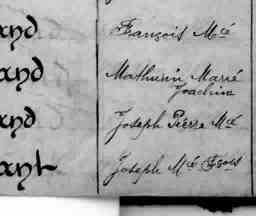 and François Mié
and Mathurin Marié
Joachim
and Joseph Pierre Mié
ant Joseph Mié Frois